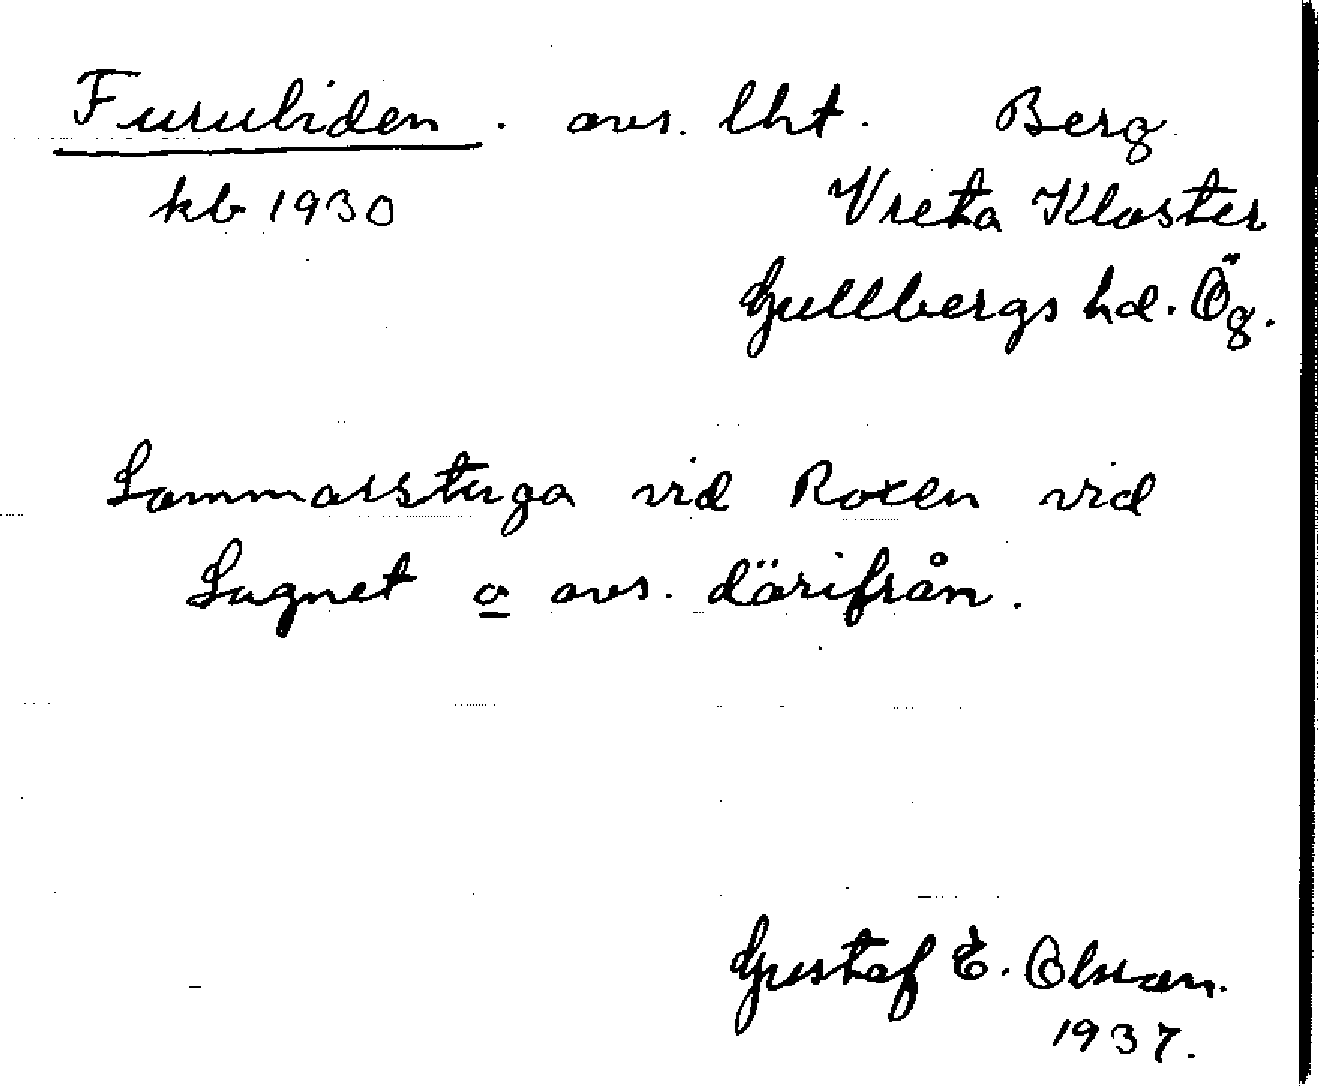 Furuliden . avs. lht. Berg
kb 1930 Vreta Kloster
Gullbergs hd. Ög.
Sommarstuga vid Roxen vid
Sugnet o avs. därifrån.
Gustaf E. Olsson.
1937.